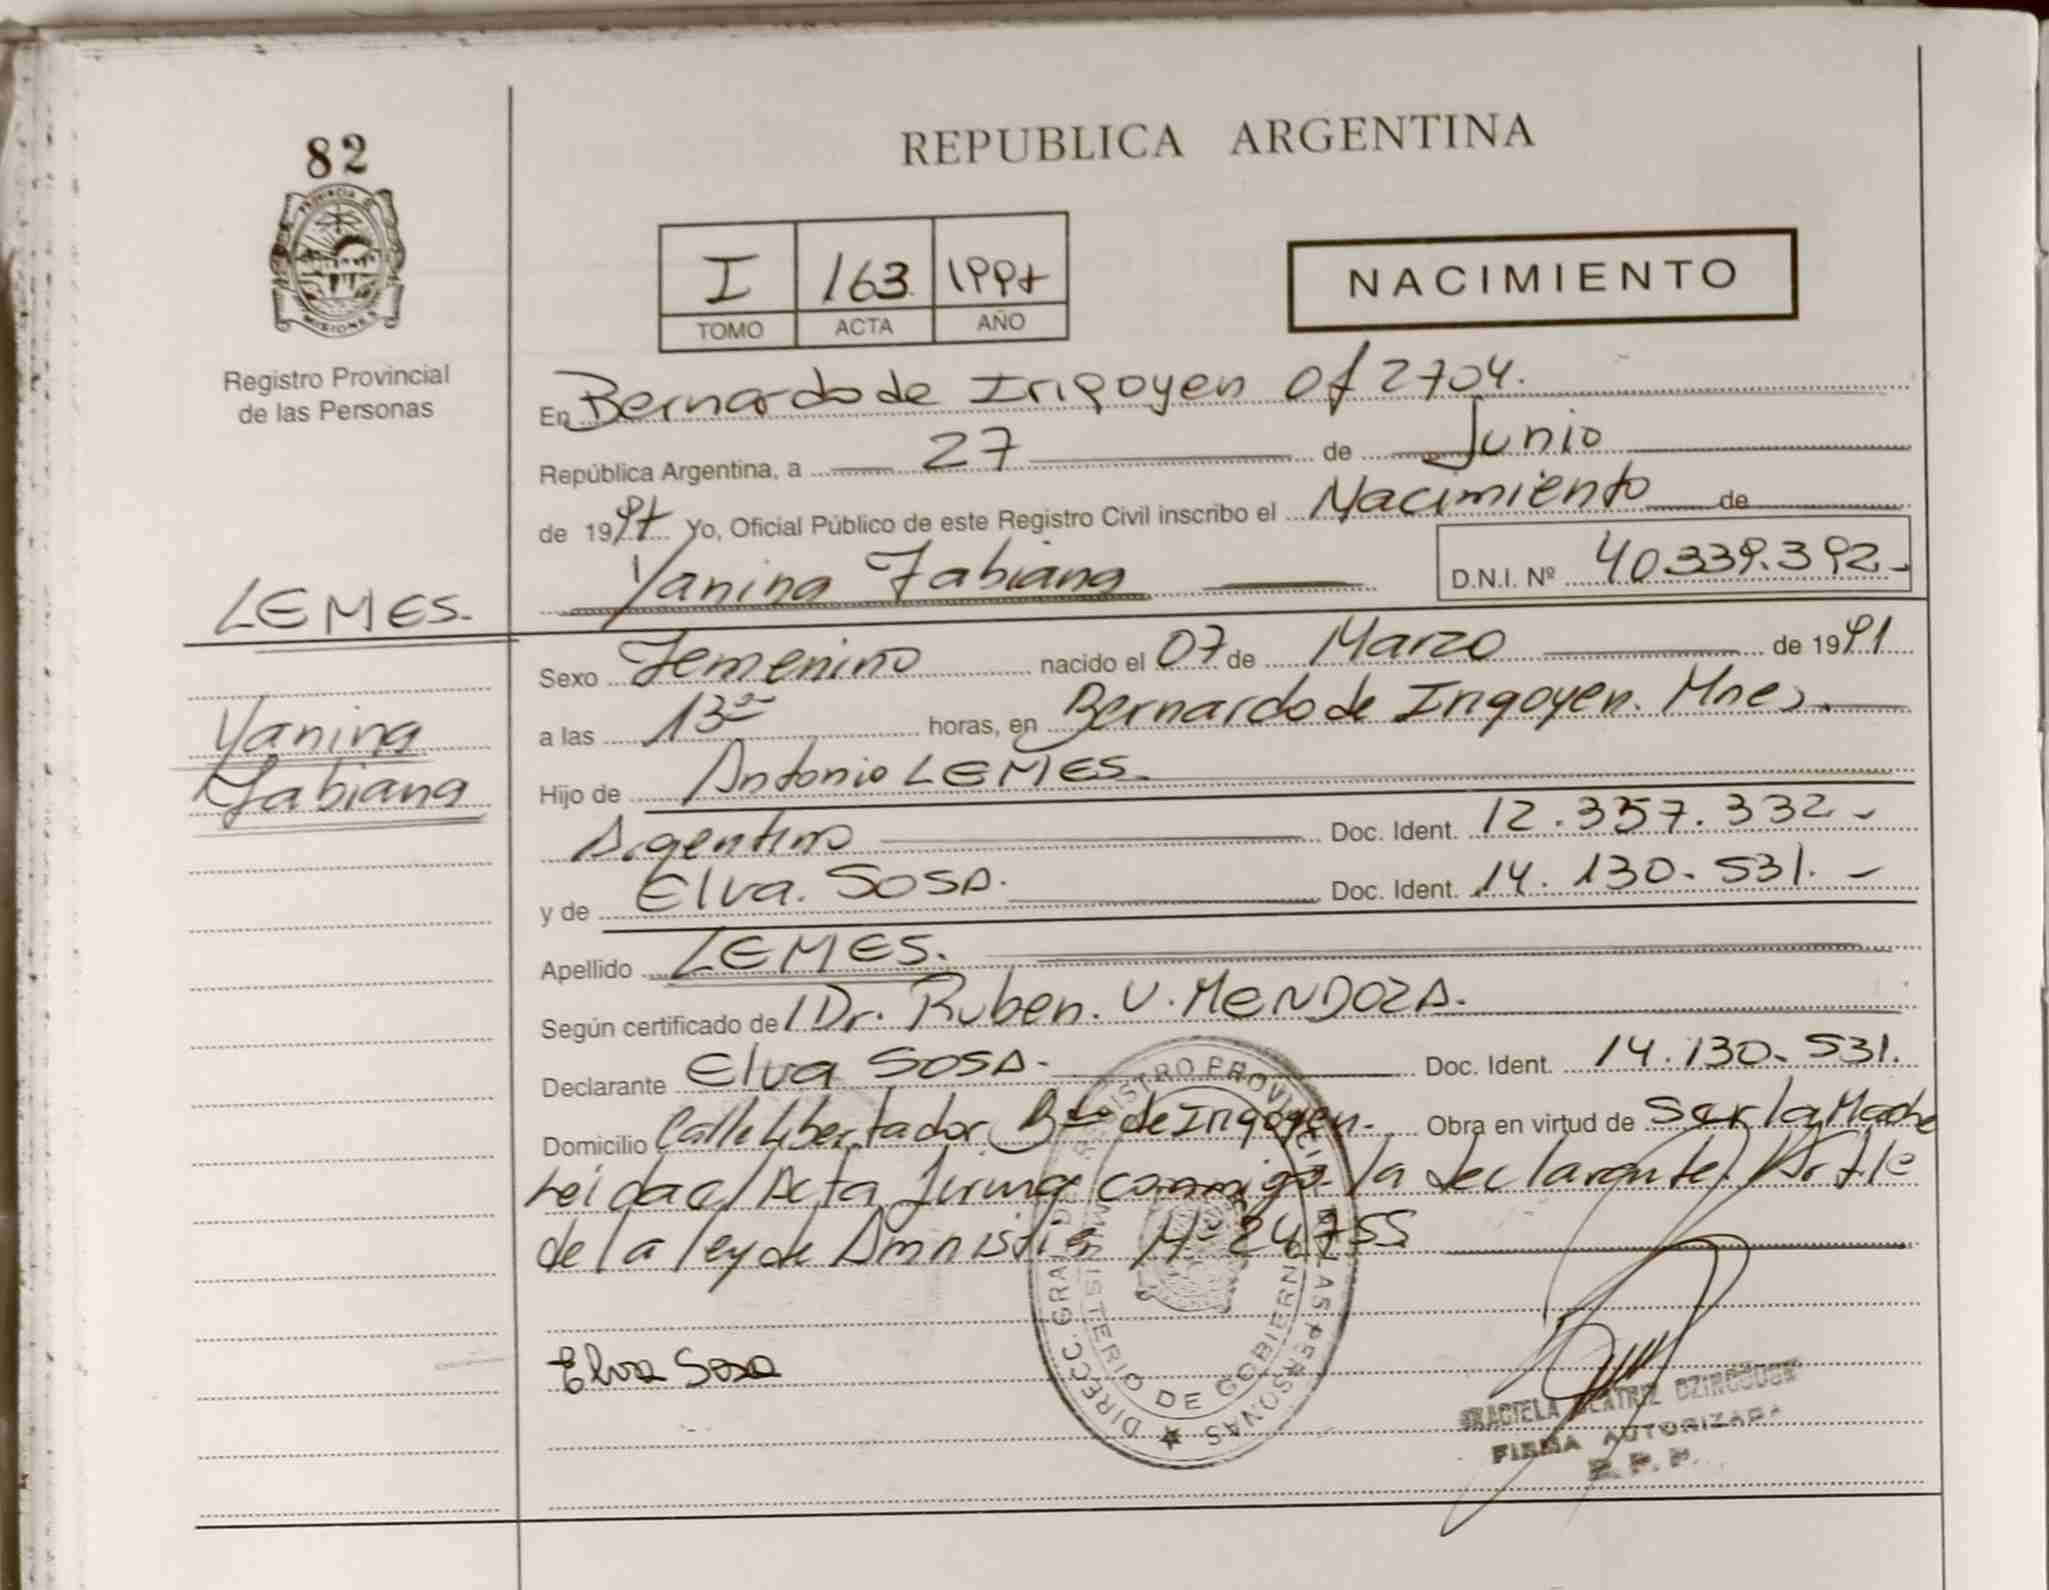 82
PROVINCIA DE
MISIONES
Registro Provincial
de las Personas
LEMES.
Yanina
Fabiana
REPUBLICA ARGENTINA
I 163 1997
TOMO ACTA AÑO
NACIMIENTO
En Bernardo de Irigoyen of 2704.
República Argentina, a 27 de Junio
de 1997 Yo, Oficial Público de este Registro Civil inscribo el Nacimiento de
Yanina Fabiana D.N.I. Nº 40.339.392.-
Sexo Femenino nacido el 07 de Marzo de 1991
a las 13 horas, en Bernardo de Irigoyen. Mnes.
Hijo de Antonio LEMES.
Argentino Doc. Ident. 12.357.332-
y de Elva. SOSA. Doc. Ident. 14.130.531.-
Apellido LEMES.
Según certificado de Dr. Ruben. V. MENDOZA.
Declarante Elva SOSA. Doc. Ident. 14.130.531.
Domicilio Calle Libertador Bdo de Irigoyen. Obra en virtud de Ser la Madre
Leida el Acta firma conmigo la declarante.
de la ley de Amnistia Nº 24755
Elva Sosa
DIRECC. GRAL DEL REGISTRO PROVINCIAL DE LAS PERSONAS
MINISTERIO DE GOBIERNO
GRACIELA BEATRIZ
FIRMA AUTORIZADA
R. P. P.